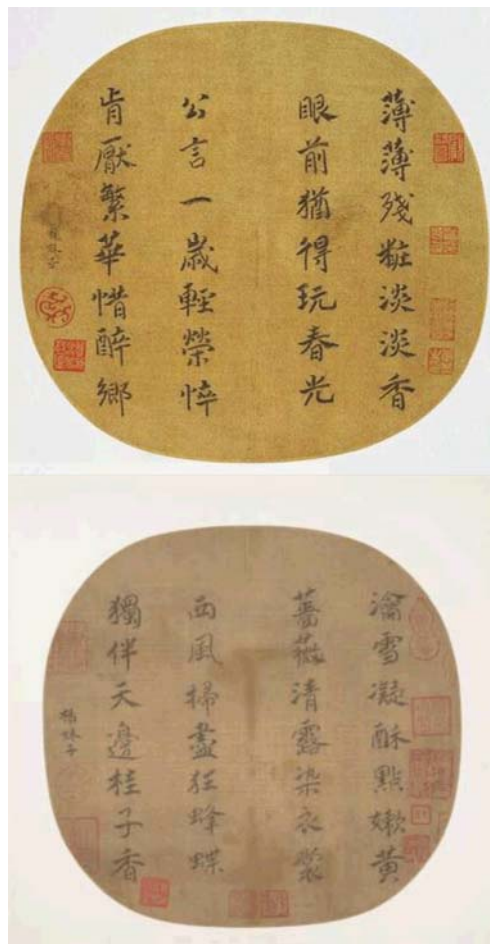 薄薄殘粧淡淡香
眼前猶得玩春光
公言一歲輕榮悴
肯厭繁華惜醉鄉
瀹雪凝酥點嫩黃
薔薇清露染衣裳
西風掃盡狂蜂蝶
獨伴天邊桂子香
楊妹子